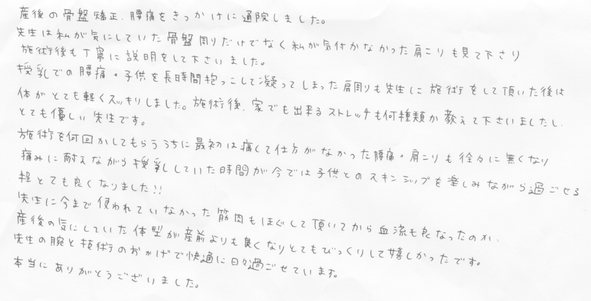 産後の骨盤矯正、腰痛をきっかけに通院しました。
先生は私が気にしていた骨盤周りだけでなく私が気付かなかった肩こりも見て下さり
施術後も丁寧に説明をして下さいました。
授乳での腰痛・子供を長時間抱っこして凝ってしまった肩周りも先生に施術をして頂いた後は
体がとても軽くスッキリしました。施術後、家でも出来るストレッチも何種類か教えて下さいましたし、
とても優しい先生です。
施術を何回かしてもらううちに最初は痛くて仕方がなかった腰痛・肩こりも徐々に無くなり
痛みに耐えながら授乳していた時間が今では子供とのスキンシップを楽しみながら過ごせる
程とても良くなりました!!
先生に今まで使われていなかった筋肉もほぐして頂いてから血流も良なったのか、
産後の気にしていた体型が産前よりも良くなりとてもびっくりして嬉しかったです。
先生の腕と技術のおかげで快適に日々過ごせています。
本当にありがとうございました。